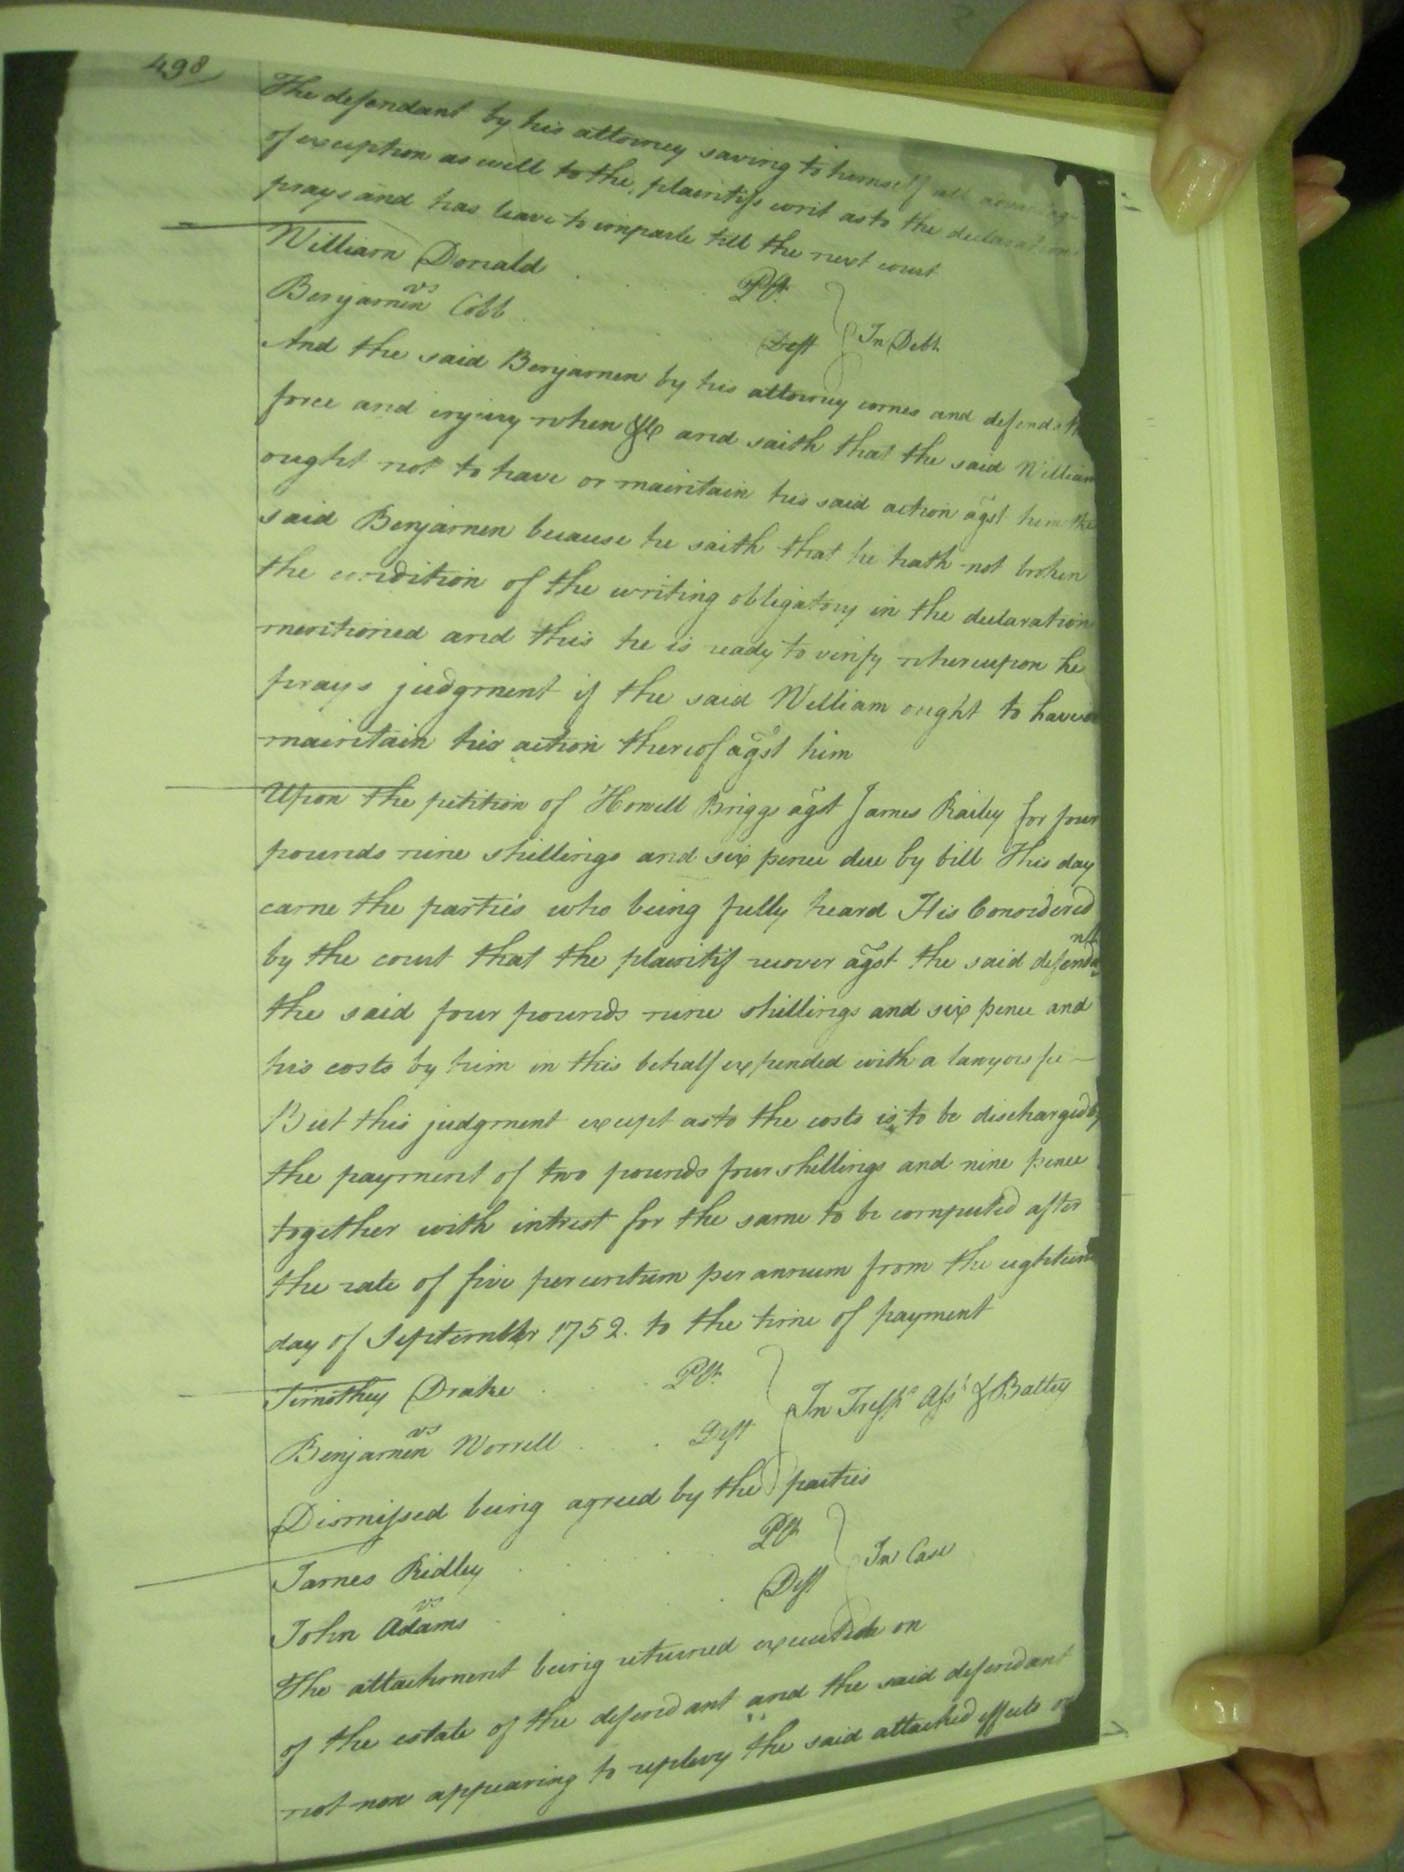 498
The defendant by his attorney saving to himself all advantag
of exception as well to the plaintifs writ as to the declaration
prays and has leave to imparle till the next court
William Donald Plt
vs
Benjamin Cobb Deft In Debt
And the said Benjamin by his attorney comes and defends the
force and injury when &c and saith that the said William
ought not to have or maintain his said action agst him the
said Benjamin because he saith that he hath not broken
the condition of the writing obligatory in the declaration
mentioned and this he is ready to verify whereupon he
prays judgment if the said William ought to have or
maintain his action thereof agst him
Upon the petition of Howell Briggs agst James Railey for four
pounds nine shillings and six pence due by bill This day
came the parties who being fully heard It is Considered
by the court that the plaintif recover agst the said defendant
the said four pounds nine shillings and six pence and
his costs by him in this behalf expended with a lawyers fee
But this judgment except as to the costs is to be discharged by
the payment of two pounds four shillings and nine pence
together with intrest for the same to be computed after
the rate of five per centum per annum from the eighteen
day of September 1752. to the time of payment
Timothey Drake Plt
vs
Benjamin Worrell Deft In Tresps Asst & Battry
Dismissed being agreed by the parties
James Ridley Plt
vs
John Adams Deft In Case
The attachment being returned executed on
of the estate of the defendant and the said defendant
not now appearing to replevy the said attached effects